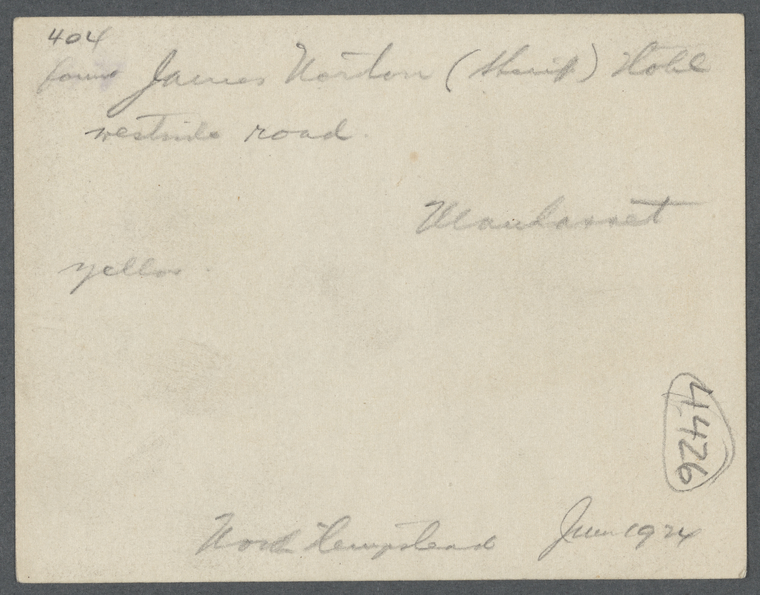 404
James Norton (Sheriff) Hotel
westside road
Manhasset
yellow
4426
North Hempstead June 1924